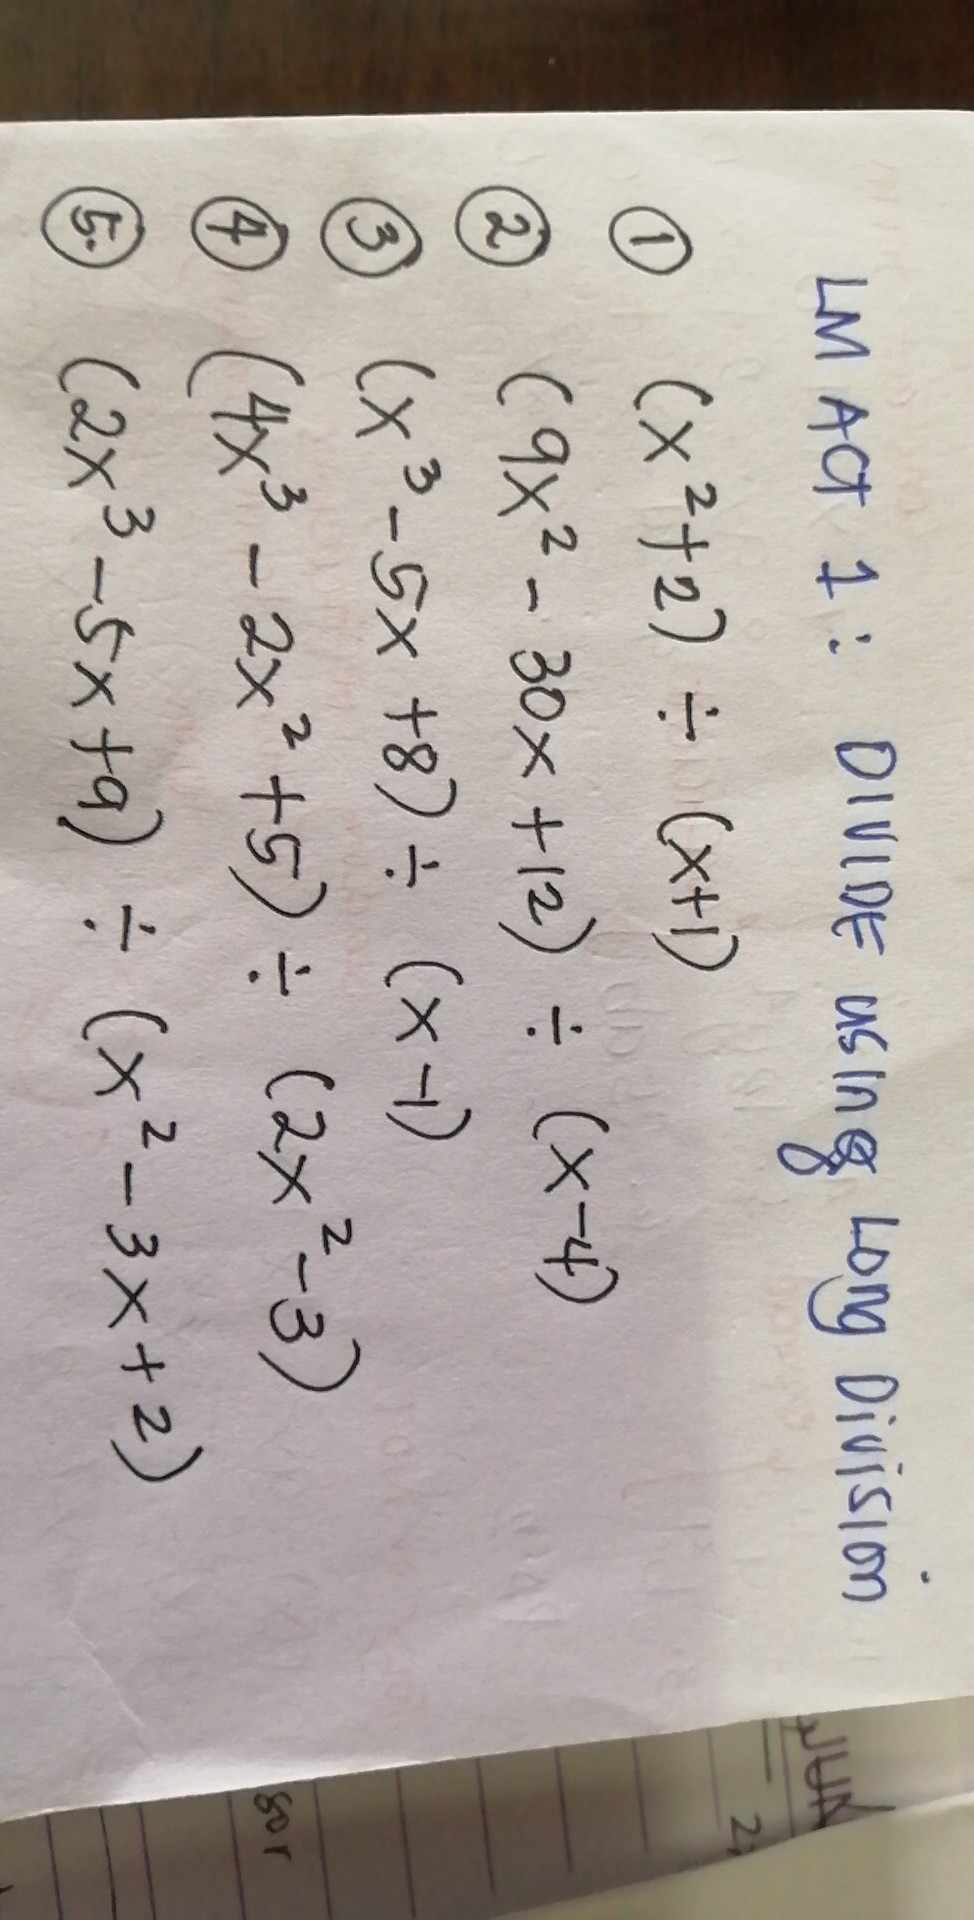 LM ACT 1: DIVIDE using Long Division
① (x²+2) ÷ (x+1)
② (9x² - 30x +12) ÷ (x-4)
③ (x³ - 5x +8) ÷ (x-1)
④ (4x³ - 2x² +5) ÷ (2x² - 3)
⑤ (2x³ - 5x +9) ÷ (x² - 3x + 2)